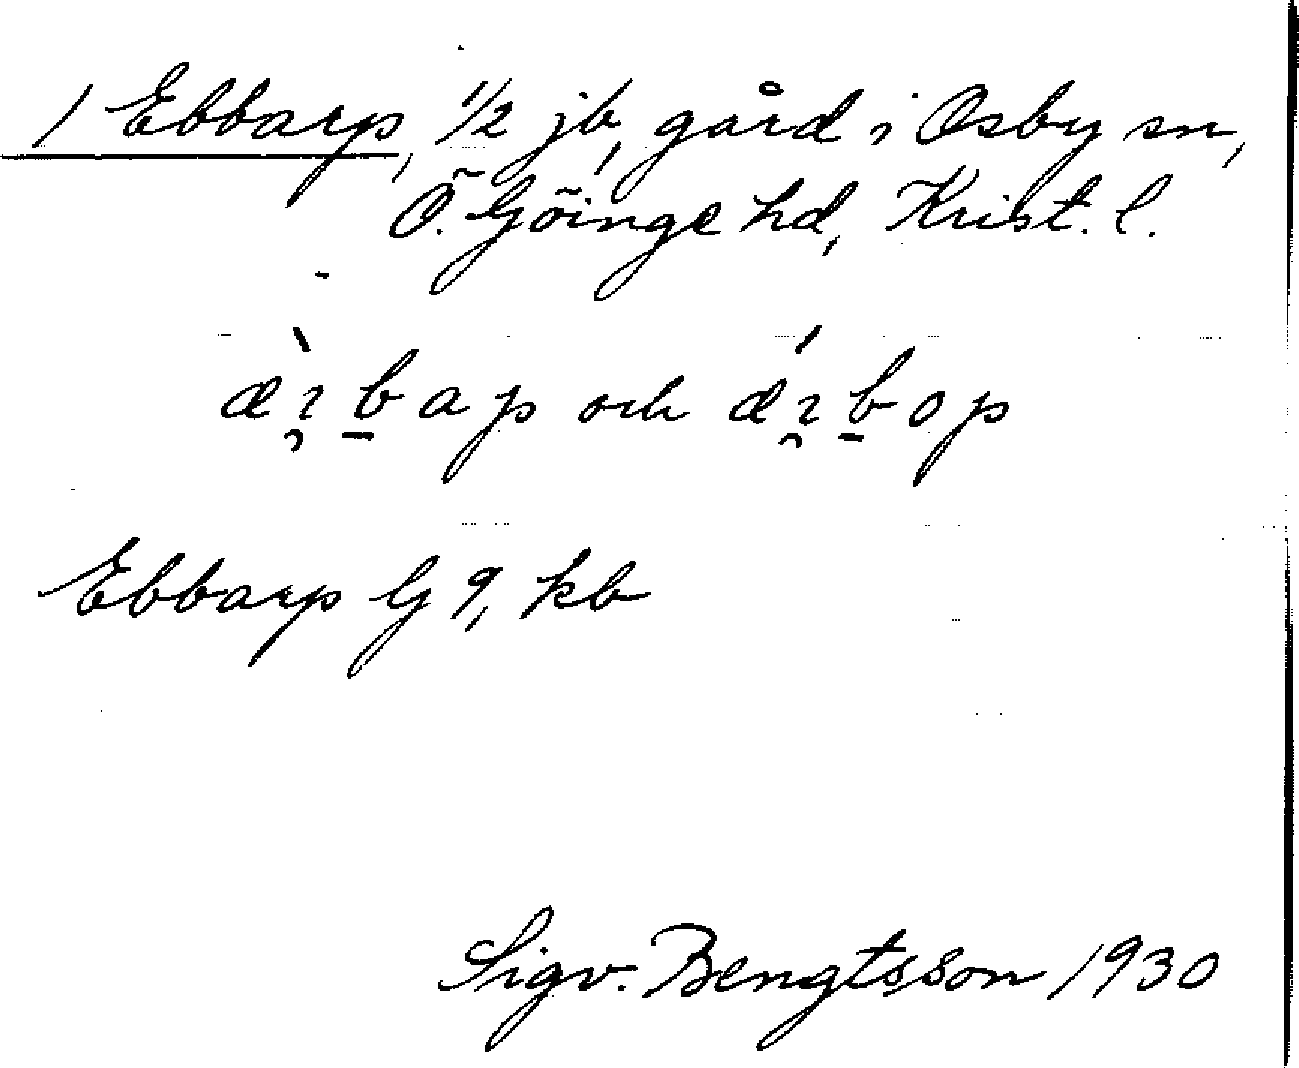 1 Ebbarp, 1/2 jb, gård i Osby sn,
Ö. Göinge hd, Krist. l.
och
Ebbarp G 9, kb
Sigv. Bengtsson 1930